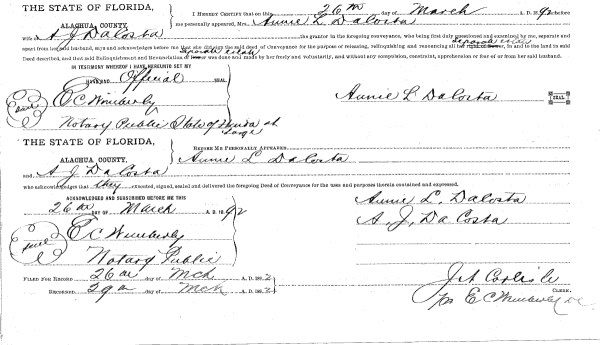 THE STATE OF FLORIDA, I HEREBY CERTIFY that on this 26th day of March A. D. 1892 before
ALACHUA COUNTY. me personally appeared, Mrs. Annie L. DaCosta
wife A J DaCosta the grantor in the foregoing conveyance, who being first duly questioned and examined by me, separate and
apart from her said husband, says and acknowledges before me that she did sign the said deed of Conveyance for the purpose of releasing, relinquishing and renouncing all her right of dower, in and to the land in said
separate estate
Deed described, and that said Relinquishment and Renunciation of dower was done and made by her freely and voluntarily, and without any compulsion, constraint apprehension or fear of or from her said husband.
separate estate
IN TESTIMONY WHEREOF I HAVE HEREUNTO SET MY
HAND AND Official SEAL
E C Wimberly Annie L DaCosta SEAL
Seal
Notary Public State of Florida at
Large
THE STATE OF FLORIDA, BEFORE ME PERSONALLY APPEARED
ALACHUA COUNTY. Annie L DaCosta
and A J DaCosta
who acknowledges that they executed, signed, sealed and delivered the foregoing Deed of Conveyance for the uses and purposes therein contained and expressed.
ACKNOWLEDGED AND SUBSCRIBED BEFORE ME THIS Annie L. DaCosta
26th DAY OF March A. D. 1892 A. J. DaCosta
E C Wimberly
Seal
Notary Public
FILED FOR RECORD 26th day of Mch A. D. 1892 CLERK.
RECORDED 29th day of Mch A. D. 1892 per E C Wimberly DC